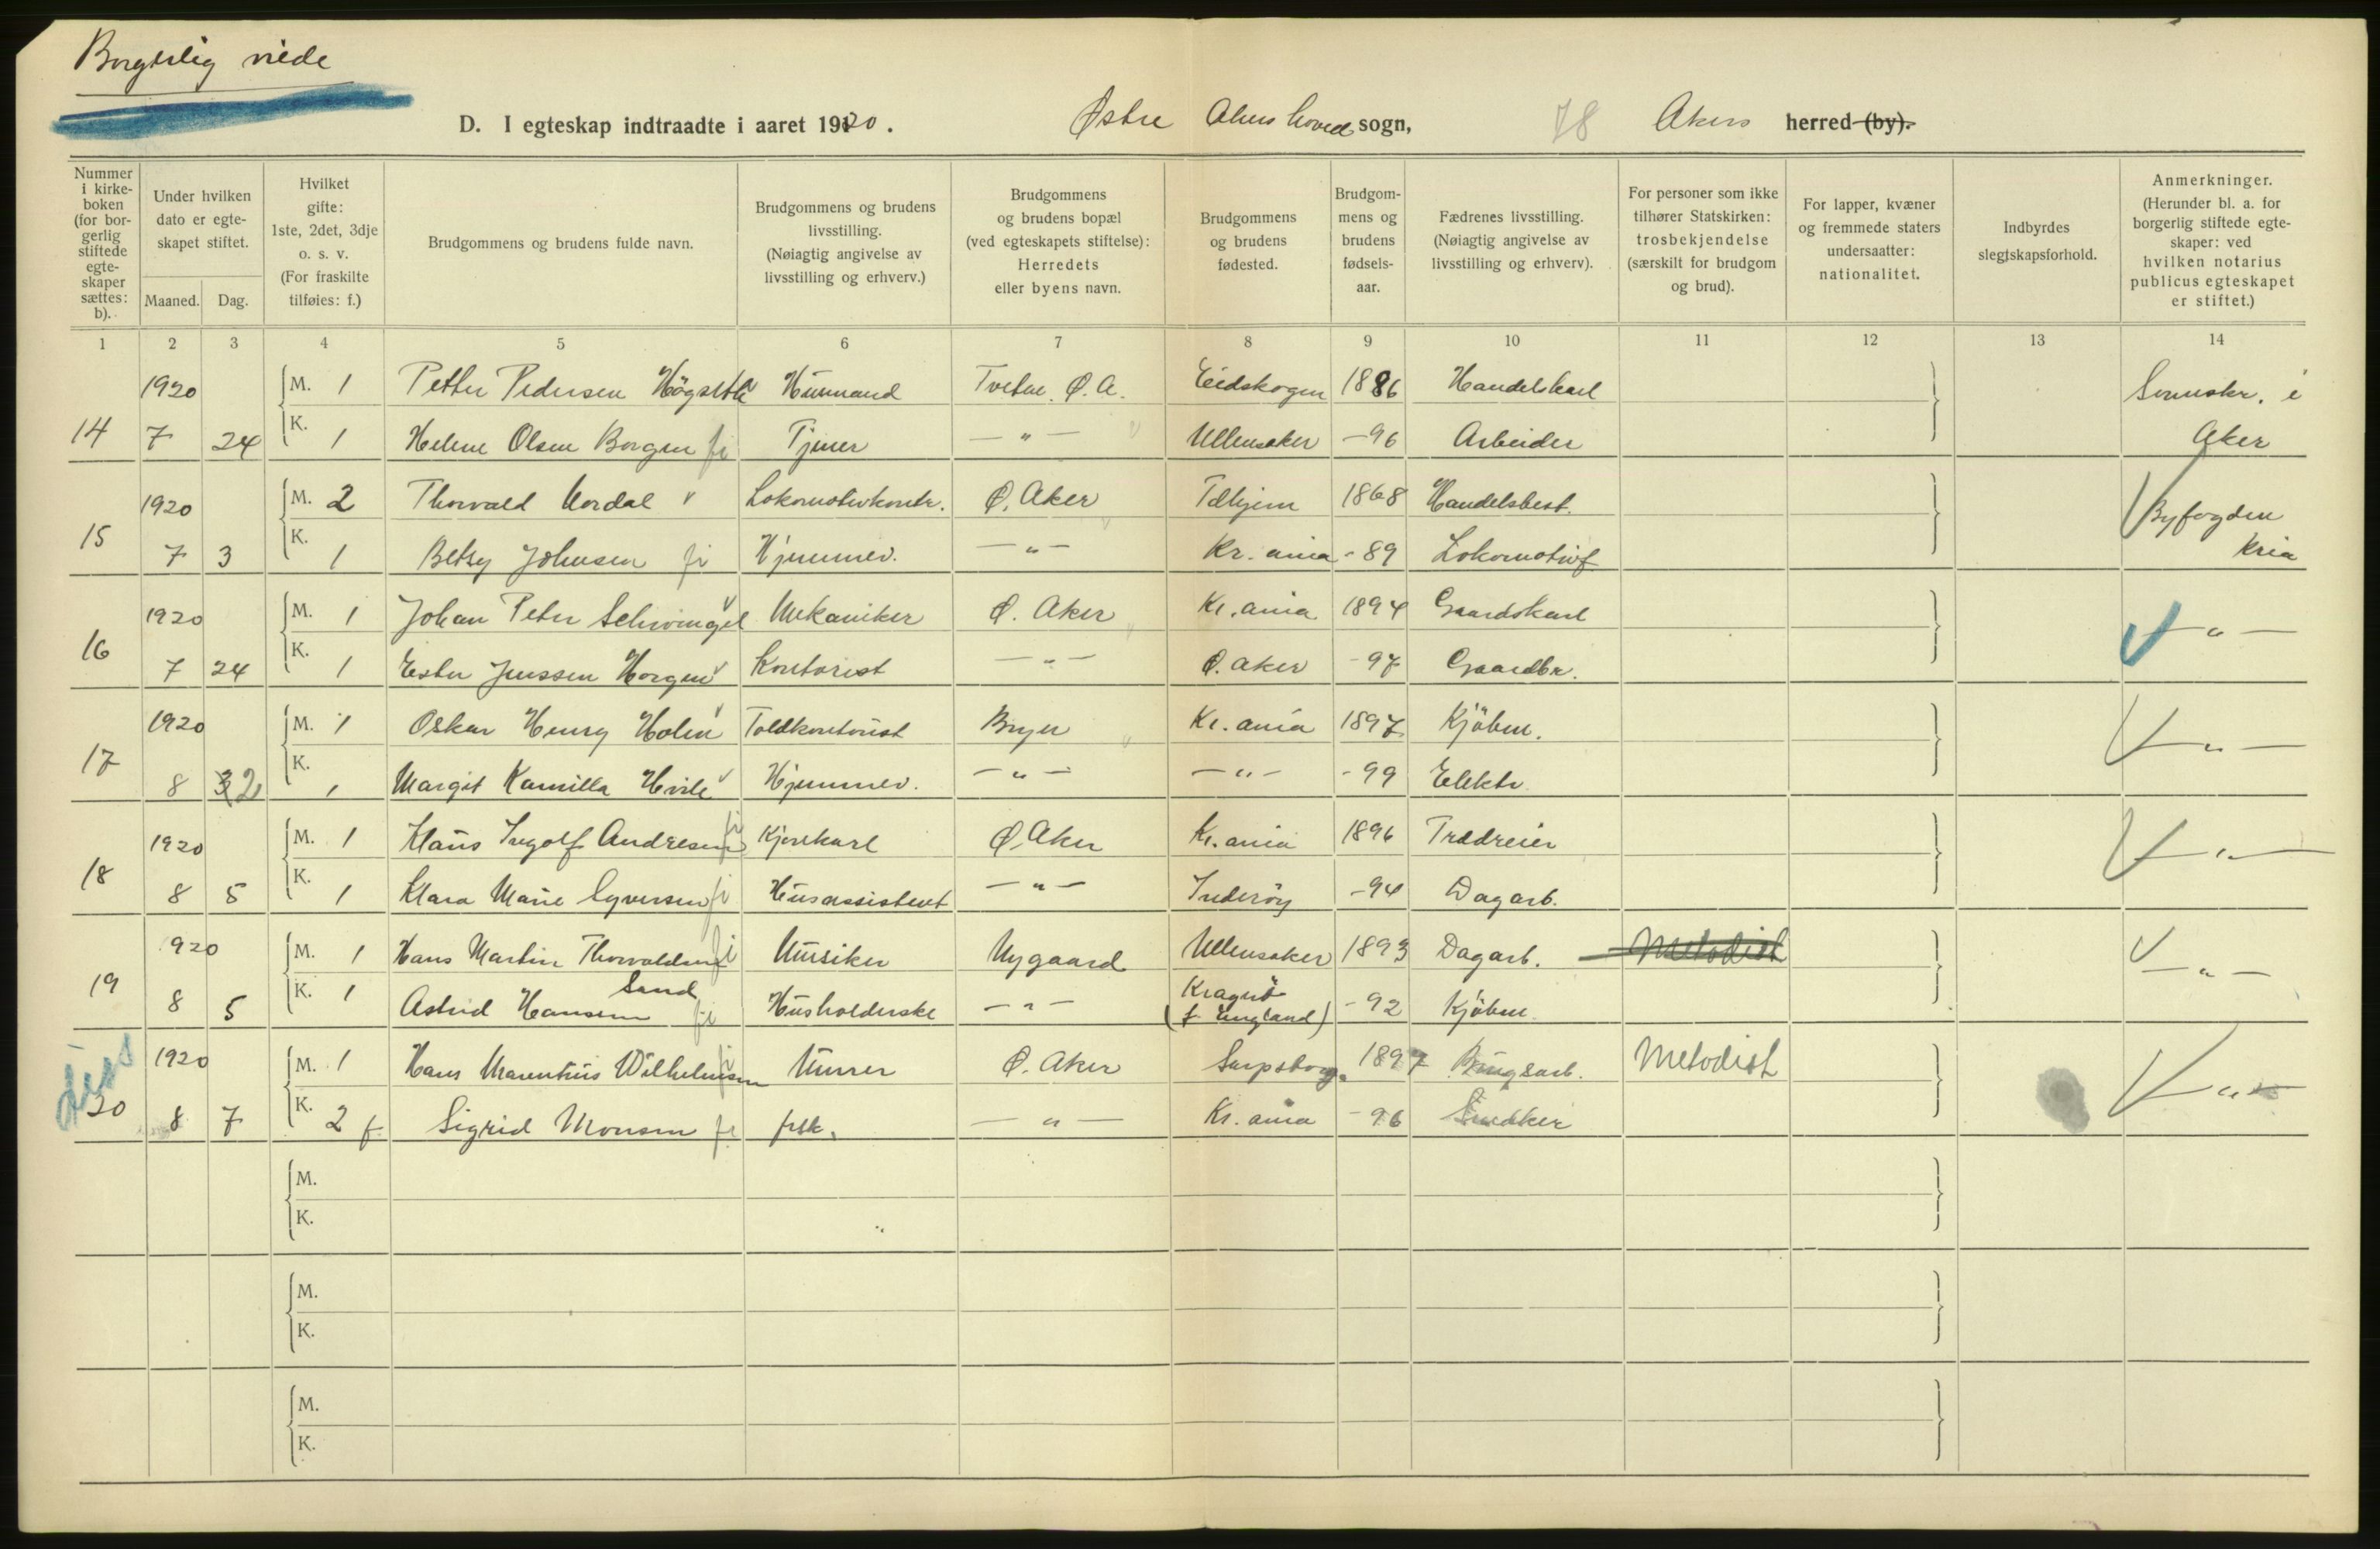 Borgerlig viede
D. I egteskap indtraadte i aaret 1920. Østre Akers hoved sogn, 78 Akers herred (by).
Nummer i kirkeboken (for borgerlig stiftede egteskaper sættes: b).
Under hvilken dato er egteskapet stiftet.
Maaned. Dag.
Hvilket gifte: 1ste, 2det, 3dje o. s. v. (For fraskilte tilføies: f.)
Brudgommens og brudens fulde navn.
Brudgommens og brudens livsstilling. (Nøiagtig angivelse av livsstilling og erhverv.)
Brudgommens og brudens bopæl (ved egteskapets stiftelse): Herredets eller byens navn.
Brudgommens og brudens fødested.
Brudgommens og brudens fødselsaar.
Fædrenes livsstilling. (Nøiagtig angivelse av livsstilling og erhverv).
For personer som ikke tilhører Statskirken: trosbekjendelse (særskilt for brudgom og brud).
For lapper, kvæner og fremmede staters undersaatter: nationalitet.
Indbyrdes slegtskapsforhold.
Anmerkninger. (Herunder bl. a. for borgerlig stiftede egteskaper: ved hvilken notarius publicus egteskapet er stiftet.)
1 2 3 4 5 6 7 8 9 10 11 12 13 14
1920 M. 1 Petter Pedersen Högseth Husmand Tveten. Ø. A. Eidskogen 1886 Handelskarl Sorenskr. i
14 7 24 K. 1 Helene Olsen Borgen Tjener — " — Ullensaker -96 Arbeider Aker
1920 M. 2 Thorvald Nordal Lokomotivkontr. Ø. Aker Tdhjem 1868 Handelsbest. Byfogden
15 7 3 K. 1 Betsy Johnsen Hjemmev. — " — Kr. ania -89 Lokomotivf. Kria
1920 M. 1 Johan Peter Schwingel Mekaniker Ø. Aker Kr. ania 1894 Gaardskarl — " —
16 7 24 K. 1 Ester Jenssen Horgen Kontorist — " — Ø. Aker -97 Gaardbr.
1920 M. 1 Oskar Henry Holm Toldkontorist Bryn Kr. ania 1897 Kjöbm. — " —
17 8 2 K. 1 Margit Kamilla Hvile Hjemmev. — " — — " — -99 Elektr.
1920 M. 1 Klaus Ingolf Andresen Kjørekarl Ø. Aker Kr. ania 1896 Trædreier — " —
18 8 5 K. 1 Klara Marie Syversen Husassistent — " — Inderöy -94 Dagarb.
1920 M. 1 Hans Martin Thorvaldsen Musiker Nygaard Ullensaker 1893 Dagarb. Metodist — " —
Sand
19 8 5 K. 1 Astrid Hansen Husholderske — " — Kragerö (f. England) -92 Kjöbm.
1920 M. 1 Hans Marentius Wilhelmsen Murer Ø. Aker Sarpsborg. 1897 Brugsarb. Metodist — " —
20 8 7 K. 2 f. Sigrid Monsen frsk. — " — Kr. ania -96 Snedker
M.
K.
M.
K.
M.
K.